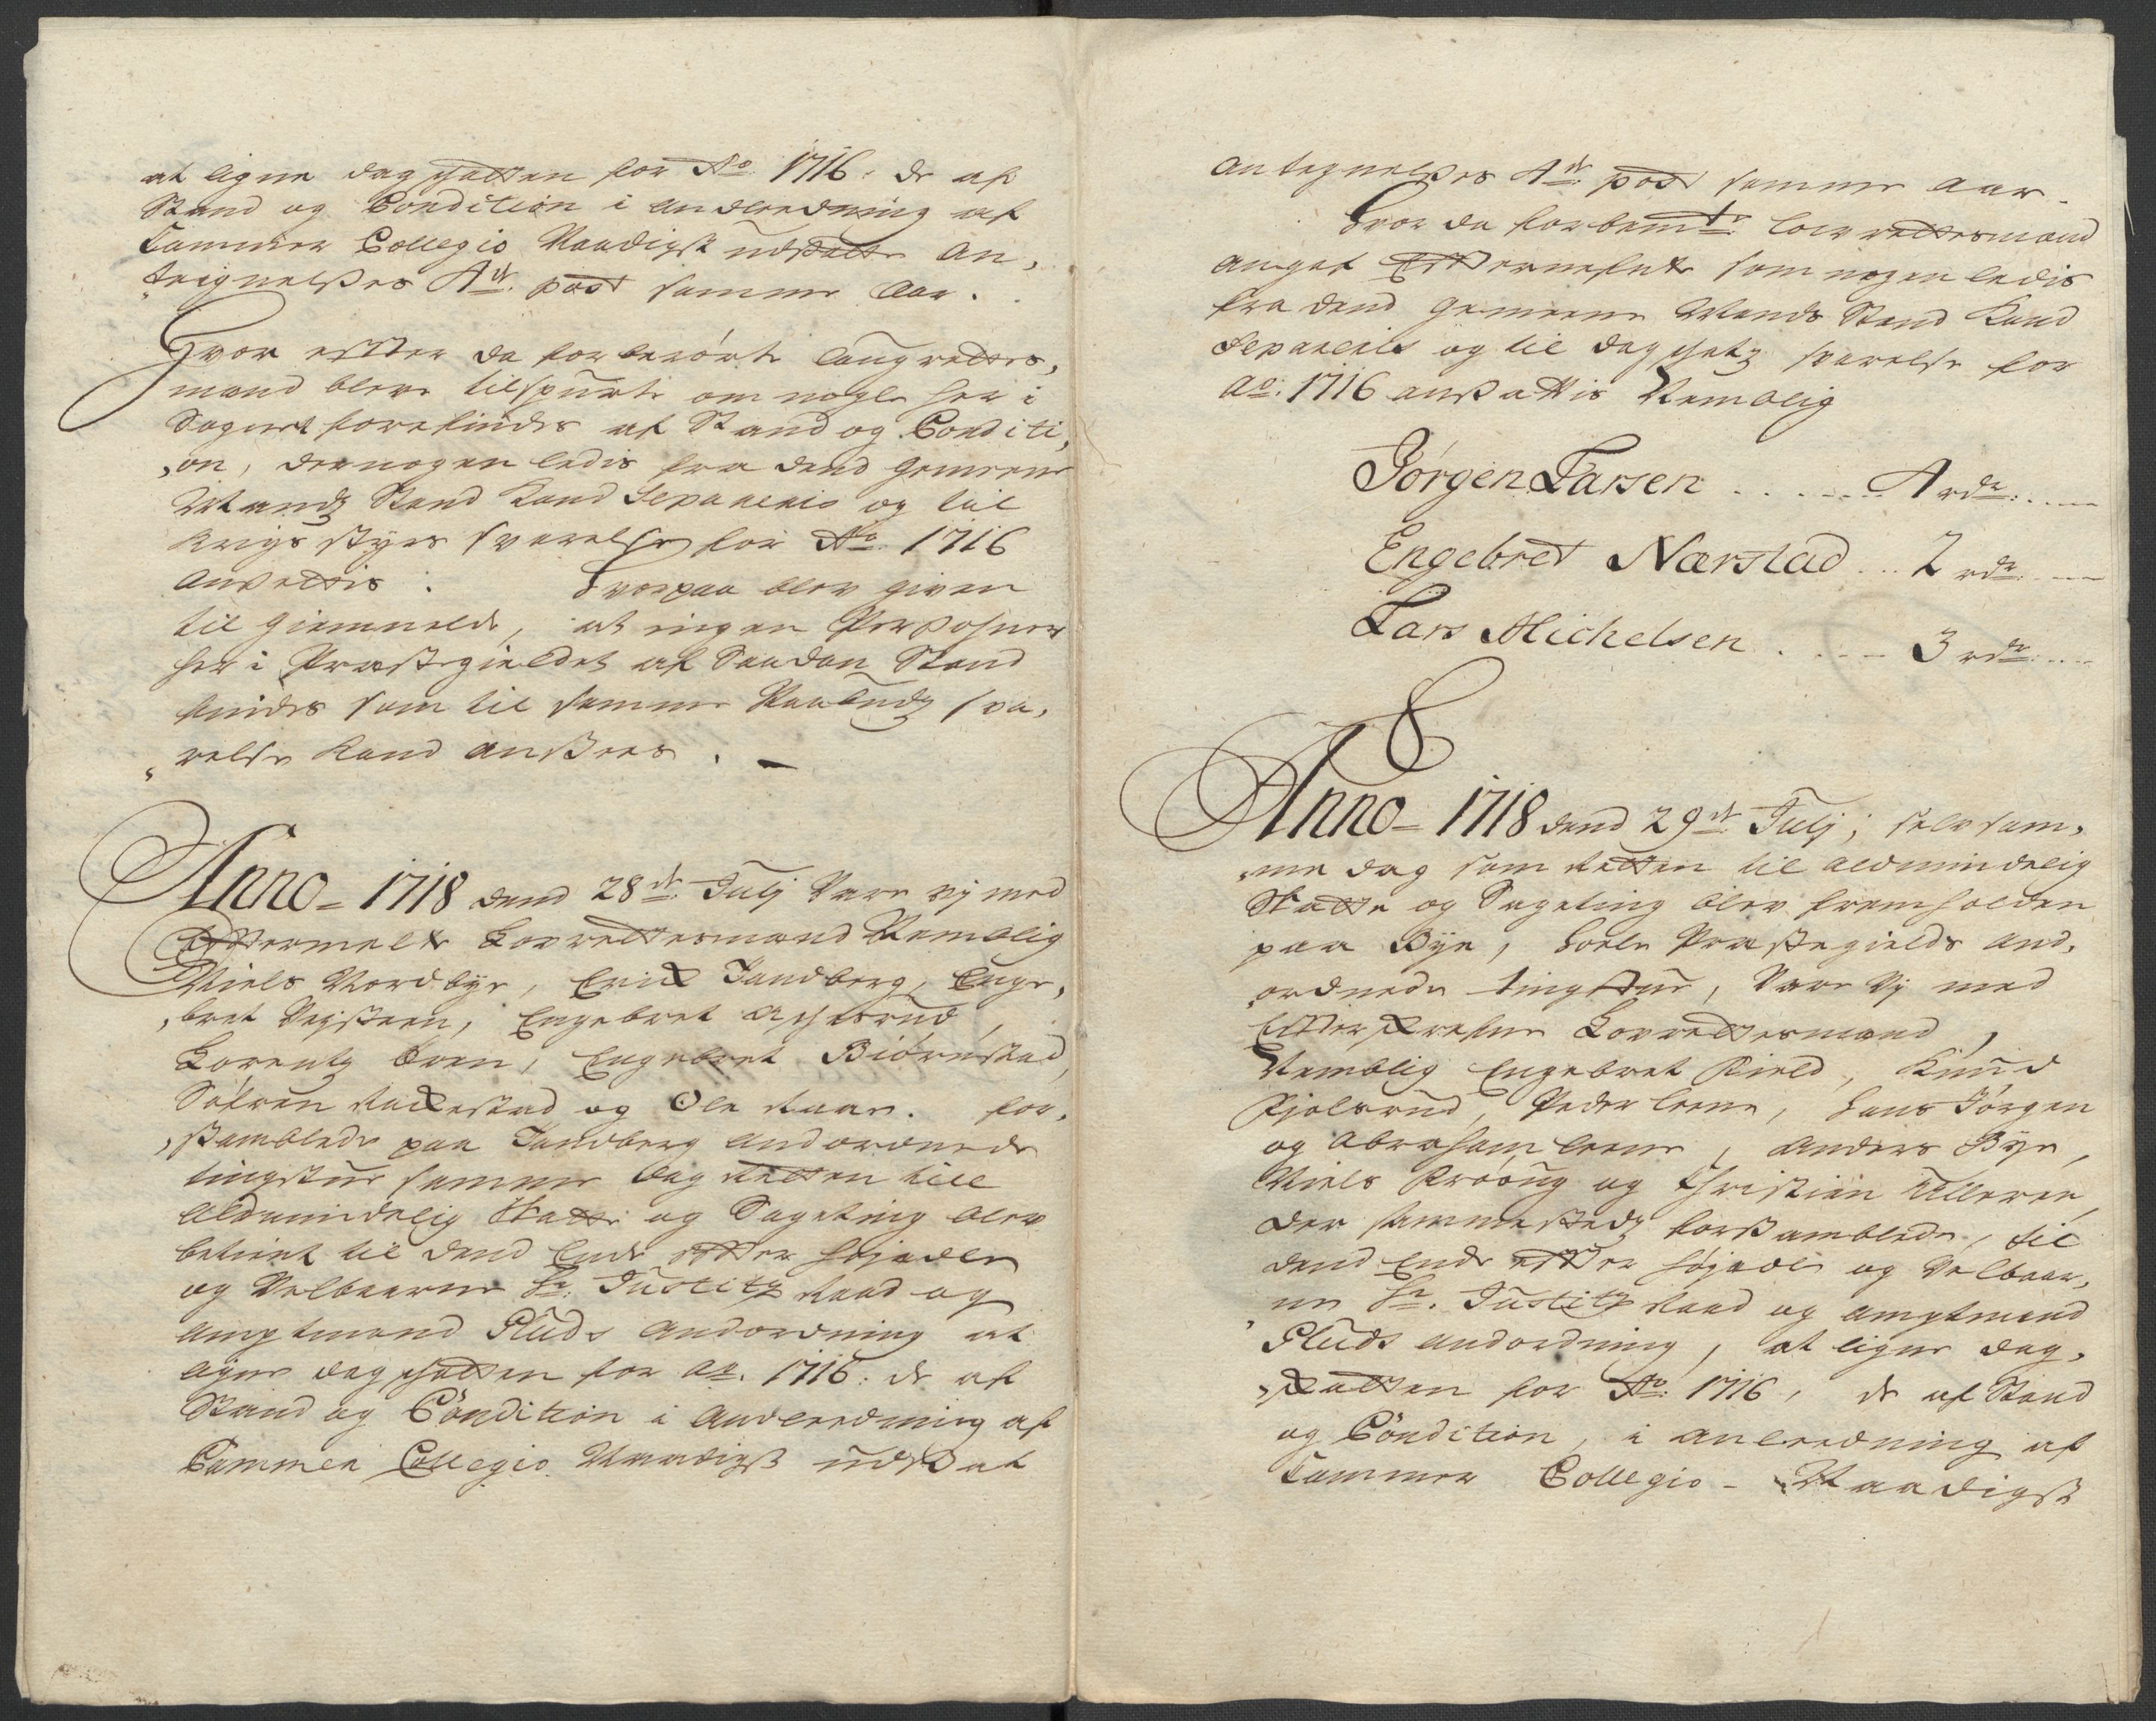 at ligne dagskatten for Ao 1716: de af
Stand og Condition i anleedning af
Cammer Collegio Naadigst udsatte An,
teignelses 4de post samme Aar.
Hvor effter da forberørte Laugrettes,
mænd bleve tilspurt om nogle her i
Sognet forefindes af Stand og Conditi,
on, der nogenledis fra dend gemeene
Mands Stand kand separeris og til
Krigs styrs svarelse for Ao 1716
ansettis: Hvorpaa blev given
til giemmelde, at ingen Persohner
her i Præstegieldet af saadan Stand
findes som til samme Paabuds sva,
relse kand ansees.
Anno 1718 dend 28de Julj Vare vj med
Efftermelte Lovrettesmænd Nemblig
Niels Nordbye, Erich Sandberg, Enge,
bret Nysteen, Engebret
Lorentz Oren, Engebret Biørnstad,
Søfren Rackestad og Ole Raae. for,
samblede paa Sandberg andordnede
tingstue samme dag Retten till
Aldmindelig Skatte og Sageting blev
betient til dend Ende effter høyædle
og Velbaarne Hr. Justitz Raad og
Amptmand Gluds andordning at
ligne dagskatten for Ao. 1716: de af
Stand og Condition i Anleedning af
Cammer Collegio Naadigst udsat
antegnelses 4de post samme aar.
Hvor da forbemte lowrettesmænd
angaf Effternefnte som nogenledis
fra dend gemeene Mands Stand kand
separeris og til dagskatz svarelse for
Ao. 1716 ansættis Nemblig
Jørgen Larsen ....... 4 rdr: ....
Engebret Nærstad ... 2 rdr: ....
Lars Michelsen ..... 3 rdr: ....
Anno 1718 dend 29de Julj; selvsam,
me dag som Retten til aldmindelig
Skatte og Sageting blev fremholden
paa Bye, Præstegields and,
ordnede tingstue, Vare Vj med
Effterskrefne Lovrettesmænd,
Nemblig Engebret Kield, Knud
Fjolsrud, Peder Leene, Hans Jørgen
og Abraham Leene, Anders Bye,
Niels Krøoug og Christian Ulleren,
der sammesteds forsamblede, til
dend Ende effter høyædle og Velbaar,
ne Hr. Justitz Raad og Amptmand
Gluds andordning, at ligne dag,
skatten for Ao: 1716, de af Stand
og Condition, i anleedning af
Cammer Collegio Naadigst